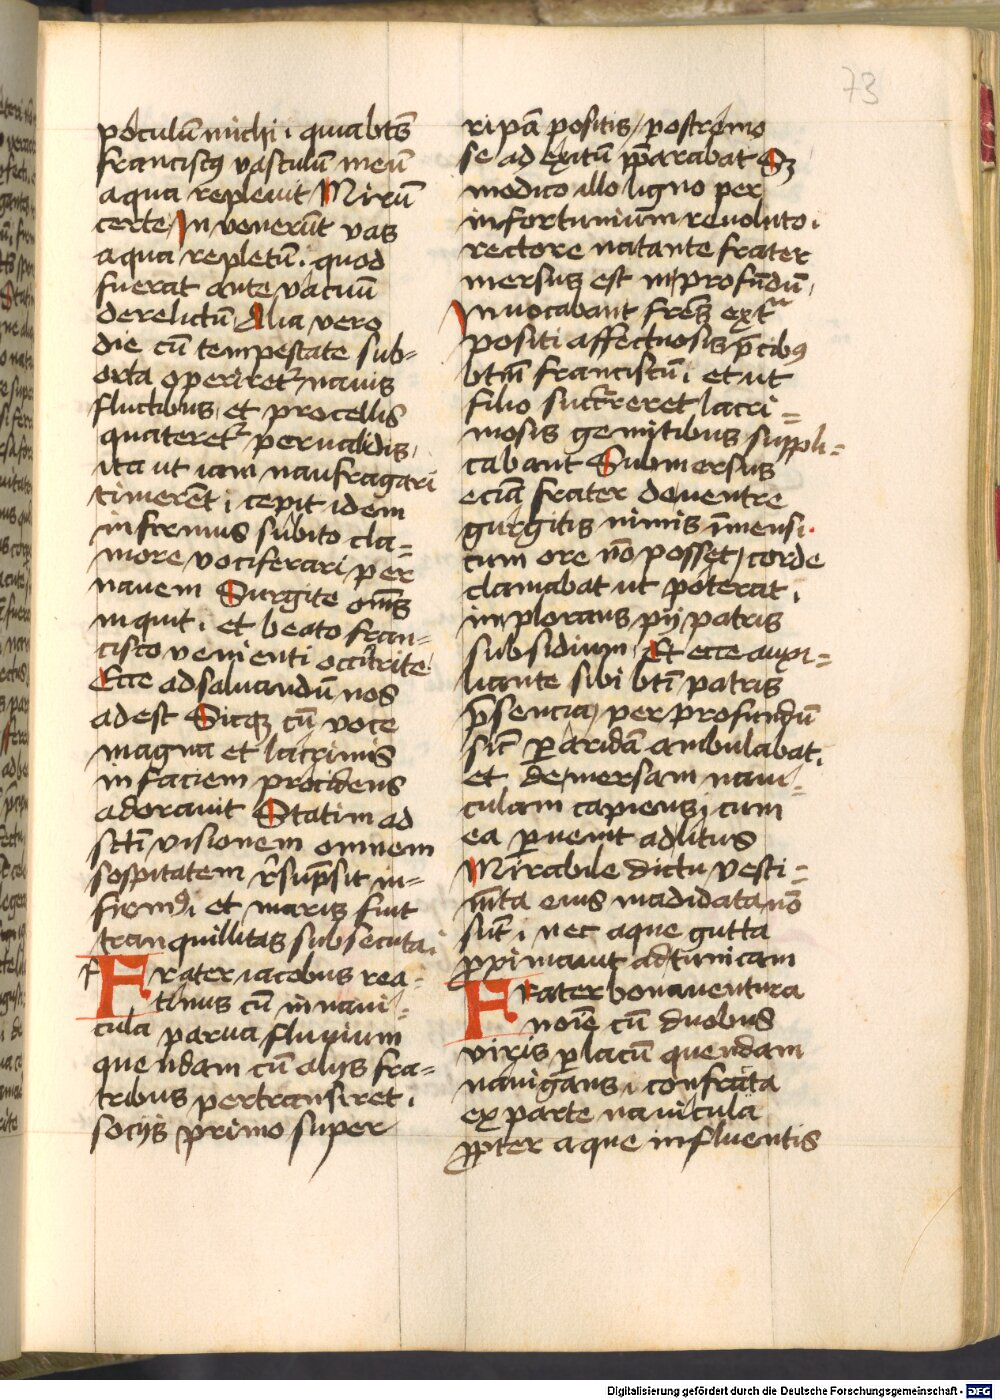 73
poculū michi i quia btūs
franciscꝯ vasculū meū
aqua repleuit Mirū
certe In venerūt vas
aqua repletū. quod
fuerat ante vacuū
derelictū Alia vero
die cū tempestate sub=
orta operiretᷣ nauis
fluctibus et procellis
quateretᷣ perualidis
ita ut iam naufragari
timerēt i cepit idem
infirmus subito cla=
more vociferari per
nauem Surgite om̄s
inquit i et beato fran=
cisco venienti occurrite
Ecce ad saluandū nos
adest Sicqꝫ cū voce
magna et lacrimis
in faciem procidens
adorauit Statim ad
scti visionem omnem
sospitatem resūpsit in=
firmꝯ i et maris fuit
tranquillitas subsecuta i
Frater iacobus rea=
tinus cū in naui=
cula parua fluuium
quendam cū alijs fra=
tribus pertransiret i
socijs primo super
ripā positis postremo
se ad exitū p̄parabat Sꝫ
modico illo ligno per
infortunium reuoluto i
rectore natante frater
mersus est in profundū
Inuocabant fr̄es extᵃ
positi affectuosis p̄cibꝯ
btm̄ franciscū i et ut
filio succurreret lacri=
mosis gemitibus suppli=
cabant Submersus
eciā frater de ventre
gurgitis nimis īmensi
cum ore nō posset corde
clamabat ut poterat i
implorans pij patris
subsidium Et ecce auxi=
liante sibi bti patris
p̄sencia per profundū
sic̄ ꝑ aridā ambulabat.
et demersam naui=
culam capiens i cum
ea ꝑuenit ad litus
Mirabile dictu vesti=
mēta eius madidata nō
sūt i nec aque gutta
ꝓpinauit ad tunicam
Frater bonauentura
noīe cū duobus
viris ꝑ lacū quendam
nauigans i confracta
ex parte nauicula
ꝓpter aque influentis
Digitalisierung gefördert durch die Deutsche Forschungsgemeinschaft - DFG